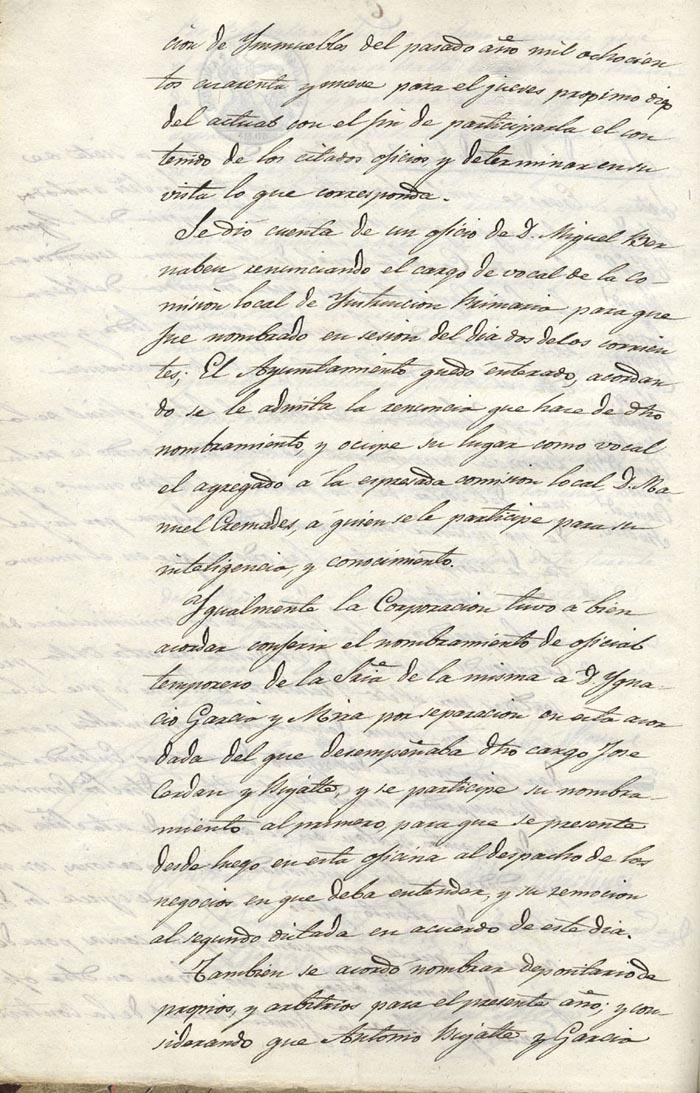 cion de Ynmuebles del pasado año mil ochocien
tos cuarenta y nueve para el jueves proximo diez
del actual con el fin de participarla el con
tenido de los citados oficios y determinar en su
vista lo que corresponda.
Se dió cuenta de un oficio de D. Miguel Ber
nabeu renunciando el cargo de vocal de la Co-
mision local de Ynstruccion Primaria para que
fue nombrado en sesion del dia dos de los corrien
tes; El Ayuntamiento quedó enterado, acordan
do se le admita la renuncia que hace de dho
nombramiento, y ocupe su lugar como vocal
el agregado à la espresada comision local D. Ma
nuel Cremades, á quien se le participe para su
inteligencia, y conocimiento.
Ygualmente la Corporacion tuvo a bien
acordar conferir el nombramiento de oficial
temporero de la Sria de la misma a D. Ygna
cio Garcia y Mira por separacion en esta acor
dada del que desempeñaba dho cargo Jose
Cerdan y Rizaltt, y se participe su nombra-
miento al primero, para que se presente
desde luego en esta oficina al despacho de los
negocios en que deba entender, y su remocion
al segundo dictada en acuerdo de este dia.
Tambien se acordó nombrar depositario de
propios, y arbitrios para el presente año; y con-
siderando que Antonio y Garcia